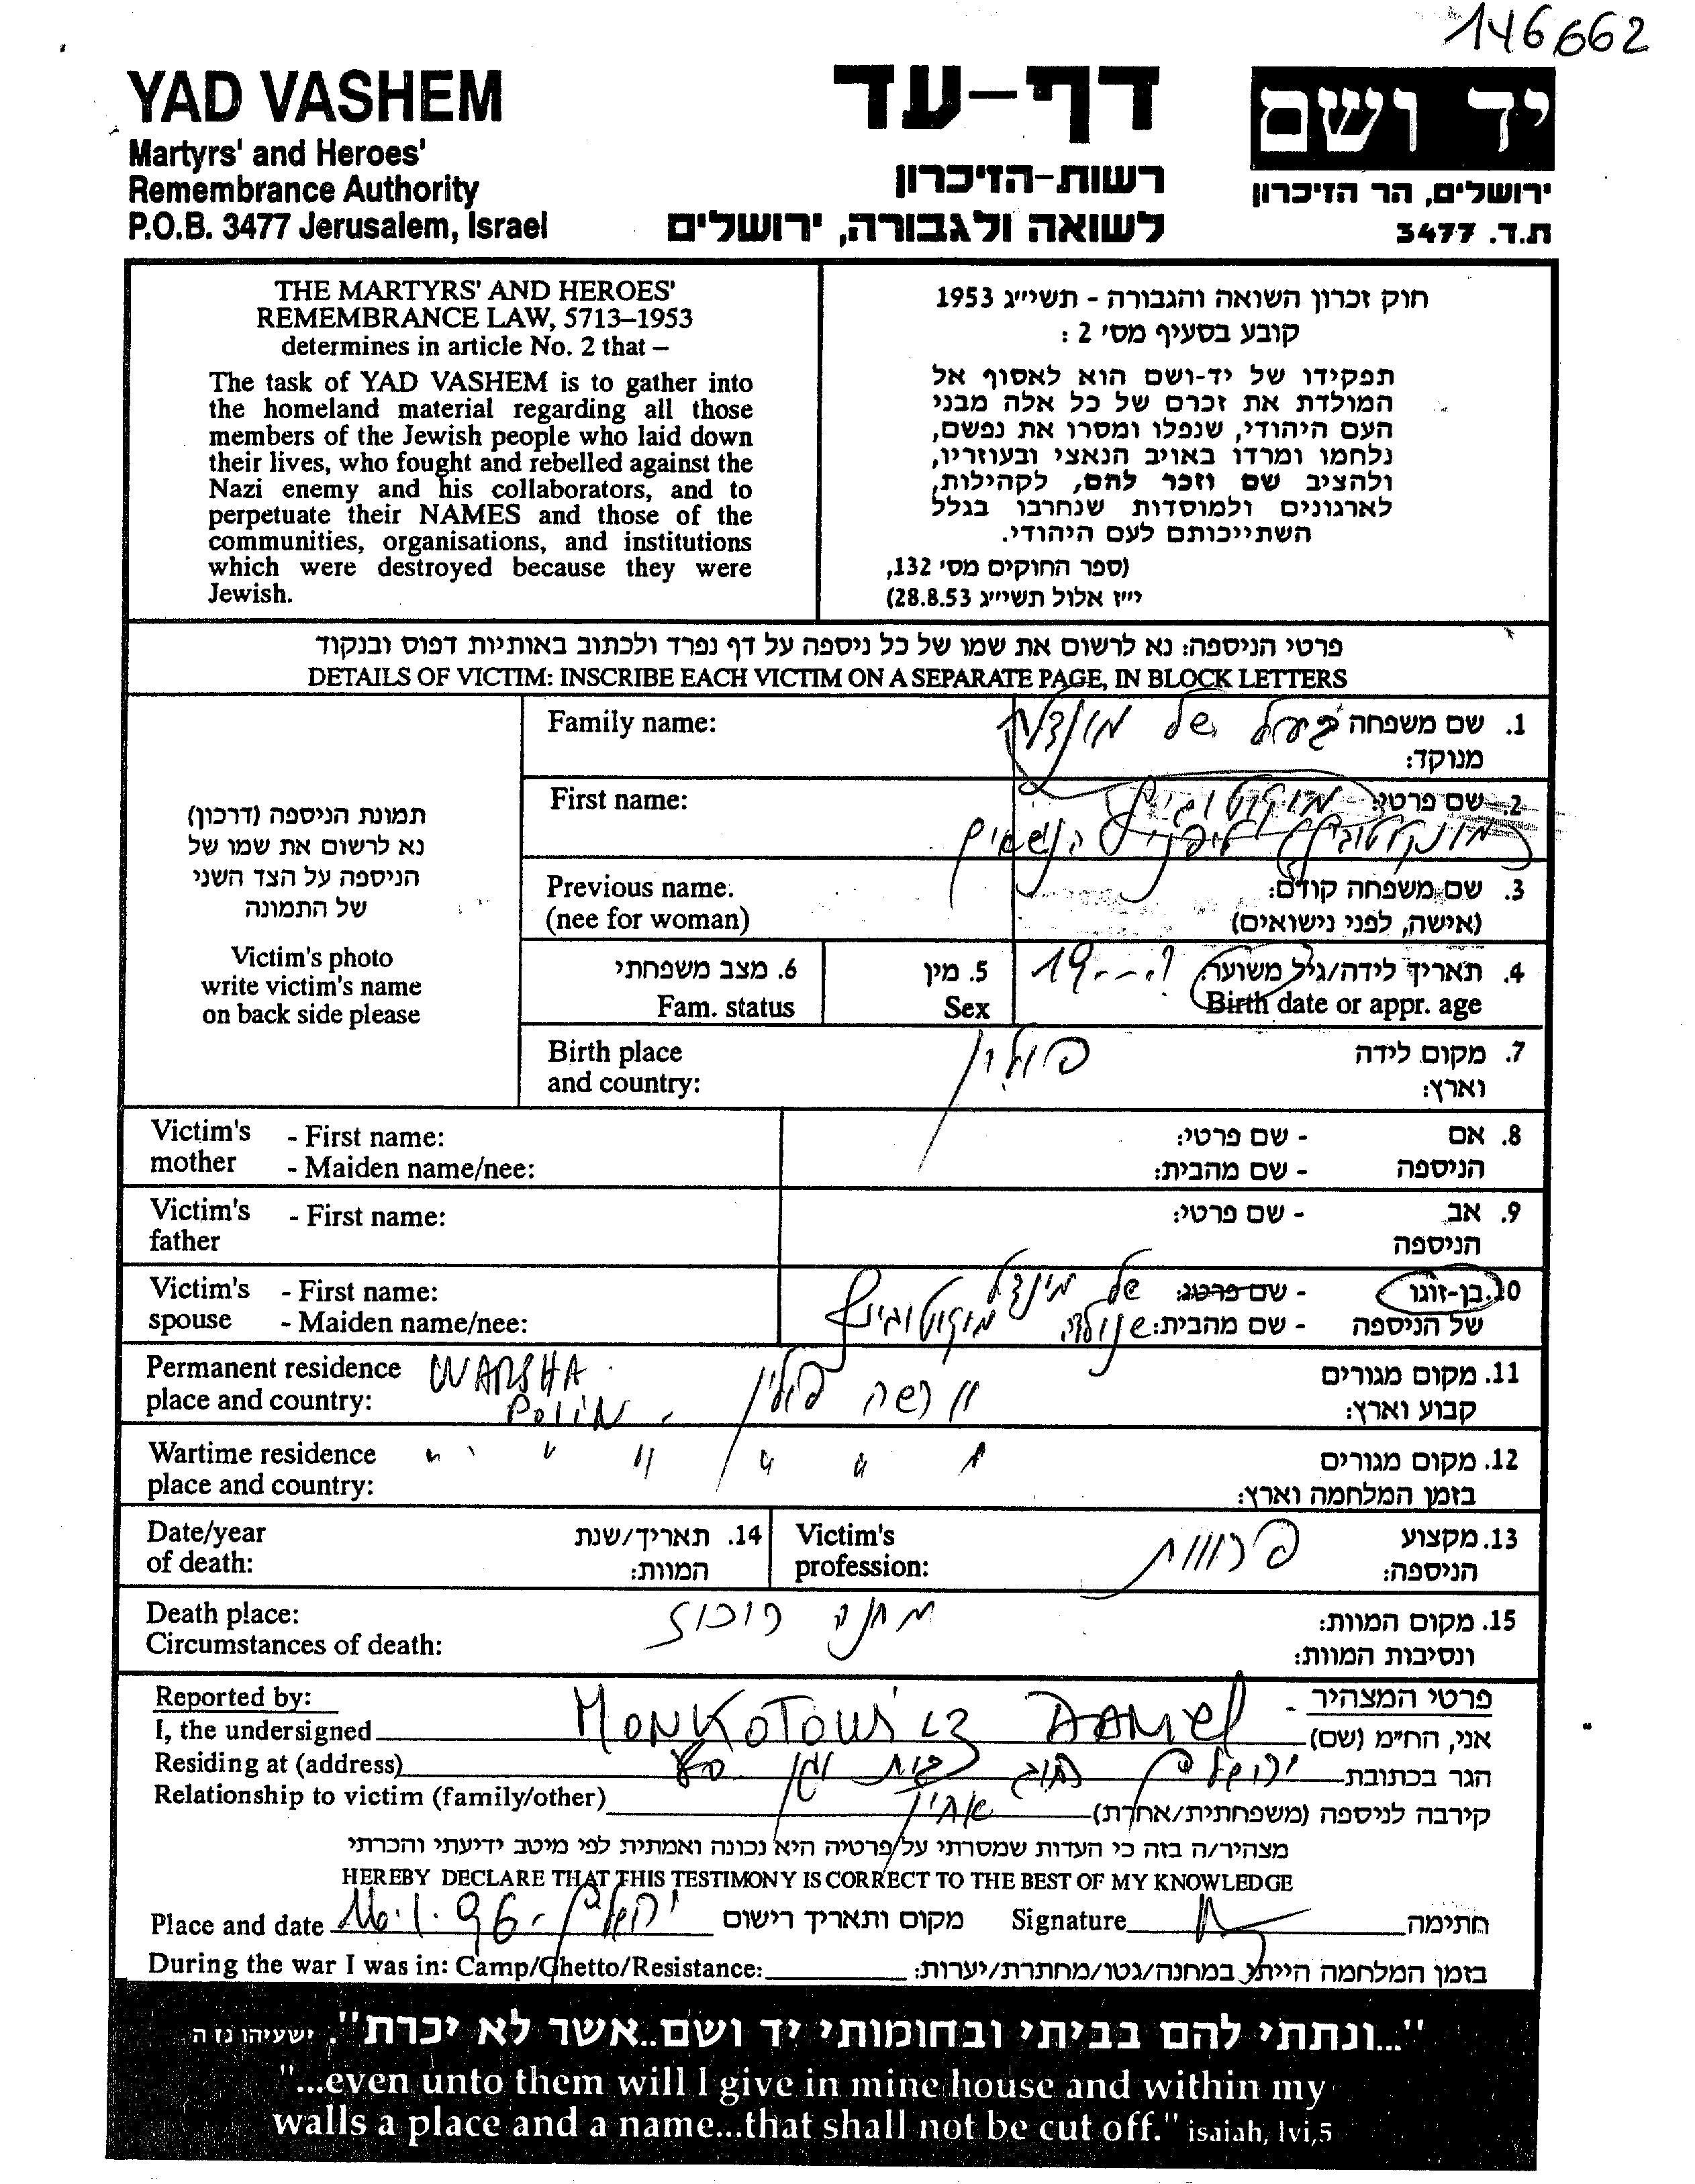 146662
YAD VASHEM
Martyrs' and Heroes'
Remembrance Authority
P.O.B. 3477 Jerusalem, Israel
דף-עד
רשות-הזיכרון
לשואה ולגבורה, ירושלים
יד ושם
ירושלים, הר הזיכרון
ת.ד. 3477
THE MARTYRS' AND HEROES'
REMEMBRANCE LAW, 5713–1953
determines in article No. 2 that –
The task of YAD VASHEM is to gather into
the homeland material regarding all those
members of the Jewish people who laid down
their lives, who fought and rebelled against the
Nazi enemy and his collaborators, and to
perpetuate their NAMES and those of the
communities, organisations, and institutions
which were destroyed because they were
Jewish.
חוק זכרון השואה והגבורה - תשי״ג 1953
קובע בסעיף מס׳ 2 :
תפקידו של יד-ושם הוא לאסוף אל
המולדת את זכרם של כל אלה מבני
העם היהודי, שנפלו ומסרו את נפשם,
נלחמו ומרדו באויב הנאצי ובעוזריו,
ולהציב שם וזכר להם, לקהילות,
לארגונים ולמוסדות שנחרבו בגלל
השתייכותם לעם היהודי.
(ספר החוקים מס׳ 132,
י״ז אלול תשי״ג 28.8.53)
פרטי הניספה: נא לרשום את שמו של כל ניספה על דף נפרד ולכתוב באותיות דפוס ובנקוד
DETAILS OF VICTIM: INSCRIBE EACH VICTIM ON A SEPARATE PAGE, IN BLOCK LETTERS
תמונת הניספה (דרכון)
נא לרשום את שמו של
הניספה על הצד השני
של התמונה
Victim's photo
write victim's name
on back side please
Family name:
1. שם משפחה בעל של מינדל
מנוקד:
First name:
2. שם פרטי:
מונקוטוביץ לפני הנישואים
Previous name.
(nee for woman)
3. שם משפחה קודם:
(אישה, לפני נישואים)
6. מצב משפחתי
Fam. status
5. מין
Sex
4. תאריך לידה/גיל משוער 19--?
Birth date or appr. age
Birth place
and country:
7. מקום לידה פולין
וארץ:
Victim's - First name:
mother - Maiden name/nee:
8. אם - שם פרטי:
הניספה - שם מהבית:
Victim's - First name:
father
9. אב - שם פרטי:
הניספה
Victim's - First name:
spouse - Maiden name/nee:
10. בן-זוגו - שם פרטי: של מינדל
של הניספה - שם מהבית: שנולדה מונקוטוביץ
Permanent residence WARSHA
place and country: POLIN
11. מקום מגורים ורשה פולין
קבוע וארץ:
Wartime residence " " " "
place and country:
12. מקום מגורים " " "
בזמן המלחמה וארץ:
Date/year
of death:
14. תאריך/שנת
המוות:
Victim's
profession:
13. מקצוע פרוות
הניספה:
Death place:
Circumstances of death:
15. מקום המוות: מחנה ריכוז
ונסיבות המוות:
Reported by:
פרטי המצהיר -
I, the undersigned MONKOTOWICZ DANIEL אני, הח״מ (שם)
Residing at (address) ירושלים בית וגן הגר בכתובת
Relationship to victim (family/other) אחיין קירבה לניספה (משפחתית/אחרת)
מצהיר/ה בזה כי העדות שמסרתי על פרטיה היא נכונה ואמתית לפי מיטב ידיעתי והכרתי
HEREBY DECLARE THAT THIS TESTIMONY IS CORRECT TO THE BEST OF MY KNOWLEDGE
Place and date 16.1.96 - ירושלים מקום ותאריך רישום Signature חתימה
During the war I was in: Camp/Ghetto/Resistance: בזמן המלחמה הייתי במחנה/גטו/מחתרת/יערות:
"...ונתתי להם בביתי ובחומותי יד ושם..אשר לא יכרת". ישעיהו נו ה
"...even unto them will I give in mine house and within my
walls a place and a name...that shall not be cut off." isaiah, lvi,5